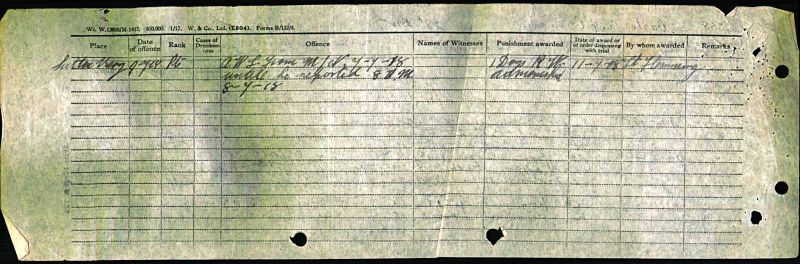 Wt. W.13066/M.1417. 500,000. 1/17. W. & Co., Ltd. (E.804.) Forms B/122/4.
Place Date of offence Rank Cases of Drunkenness Offence Names of Witnesses Punishment awarded Date of award or of order dispensing with trial By whom awarded Remarks
Pte A.W.L. from M/N 7-7-18 1 Days 11-7-18 Flemming
until he reported 8 A.M. admonished
8-7-18